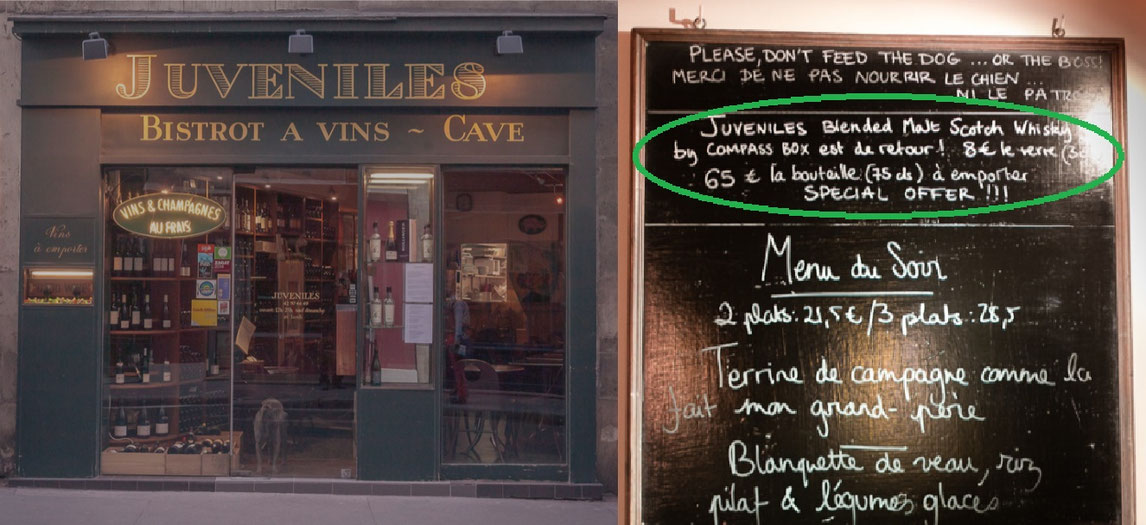 JUVENILES
BISTROT A VINS ~ CAVE
VINS & CHAMPAGNES
AU FRAIS
Vins
à emporter
JUVENILES
PLEASE, DON'T FEED THE DOG ... OR THE BOSS!
MERCI DE NE PAS NOURRIR LE CHIEN ...
NI LE PATRO
JUVENILES Blended Malt Scotch Whisky
by COMPASS BOX est de retour! 8€ le verre
65 € la bouteille (75 cls) à emporter
SPECIAL OFFER !!!
Menu du Soir
2 plats: 21,5€ / 3 plats: 28,5
Terrine de campagne comme la
fait mon grand-père
Blanquette de veau, riz
pilaf & légumes glacés